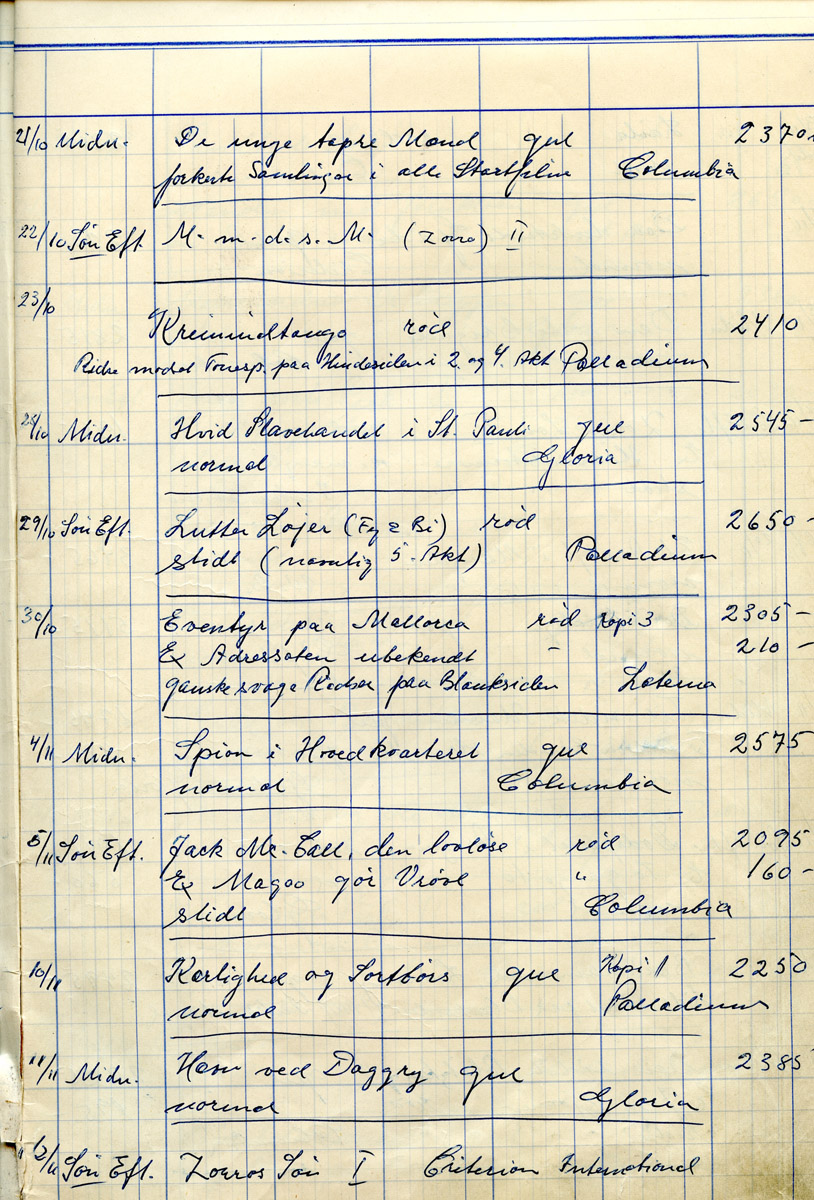 21/10 Midn. De unge tapre Mænd gul 2370-
forkerte Samlinger i alle Startfilm Columbia
22/10 Søn Eft. M. m. d. s. M. (Zorro) II
23/10
Kriminaltango rød 2410
Ridse modat Tonesp. paa Hindesiden i 2. og 4. Akt Palladium
28/10 Midn. Hvid Slavehandel i St. Pauli gul 2545-
normal Gloria
29/10 Søn Eft. Lutter Løjer (Fy & Bi) rød 2650-
slidt (navnlig 5. Akt) Palladium
30/10 Eventyr paa Mallorca rød Kopi 3 2305-
Ex Adressaten ubekendt - 210-
ganske svage Ridser paa Blanksiden Laterna
4/11 Midn. Spion i Hovedkvarteret gul 2575
normal Columbia
5/11 Søn Eft. Jack Mc. Call, den lovløse rød 2095
Ex Magoo gør Vrøvl " 160-
slidt Columbia
10/11 Kærlighed og Sortbørs gul Kopi 1 2250
normal Palladium
11/11 Midn. Hævn ved Daggry gul 2385
normal Gloria
12/11 Søn Eft. Zorros Søn I Criterion International